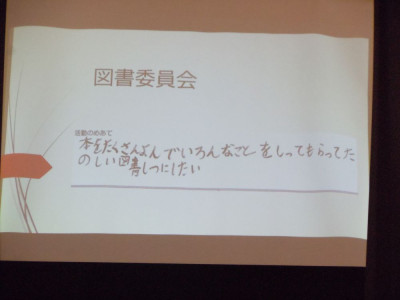 図書委員会
活動のめあて
本をたくさんよんでいろんなことをしってもらってた
のしい図書しつにしたい